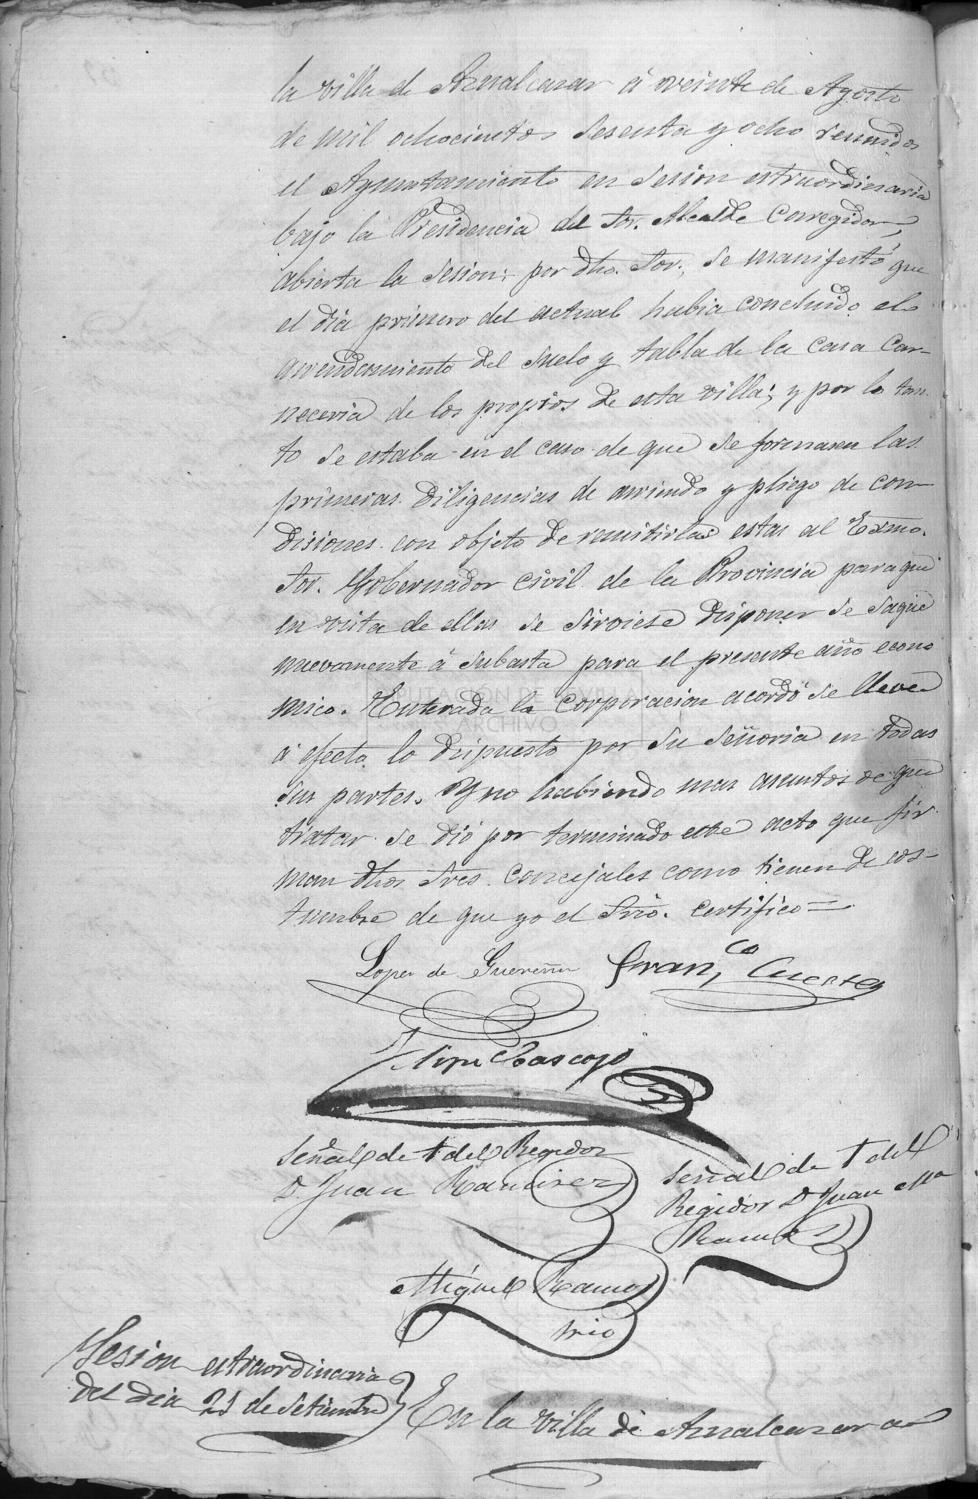 la villa de Aznalcazar á veinte de Agosto
de mil ochocientos sesenta y ocho reunidos
el Ayuntamiento en sesion estraordinaria
bajo la Presidencia del Sor. Alcalde Corregidor,
abierta la sesion; por dho. Sor. se manifestó que
el dia primero del actual habia concluido el
arrendamiento del suelo y tabla de la casa Car-
neceria de los propios de esta villa; y por lo tan
to se estaba en el caso de que se formasen las
primeras diligencias de arriendo y pliego de con-
disiones con objeto de remitirlas estas al Exmo.
Sor. Gobernador civil de la Provincia para que
en vista de ellas se sirviese disponer se saque
nuevamente á subasta para el presente año econo
mico. Enterada la Corporacion acordó se lleve
á efecto lo dispuesto por su señoria en todas
sus partes. Y no habiendo mas asuntos de que
tratar se dió por terminado este acto que fir
man dhos Sres. Concejales como tienen de cos-
tumbre de que yo el Srio. certifico=
Lopez de Guereñu Fran,co Cuesta
Felipe Rascojo
Señal de † del Regidor
D Juan Ramirez
Señal de † del
Regidor D Juan Ma
Ramos
Miguel Ramos
srio
Sesion estraordinaria
del dia 21 de Setiembre
En la villa de Aznalcazar a
DIPUTACIÓN DE SEVILLA
ARCHIVO